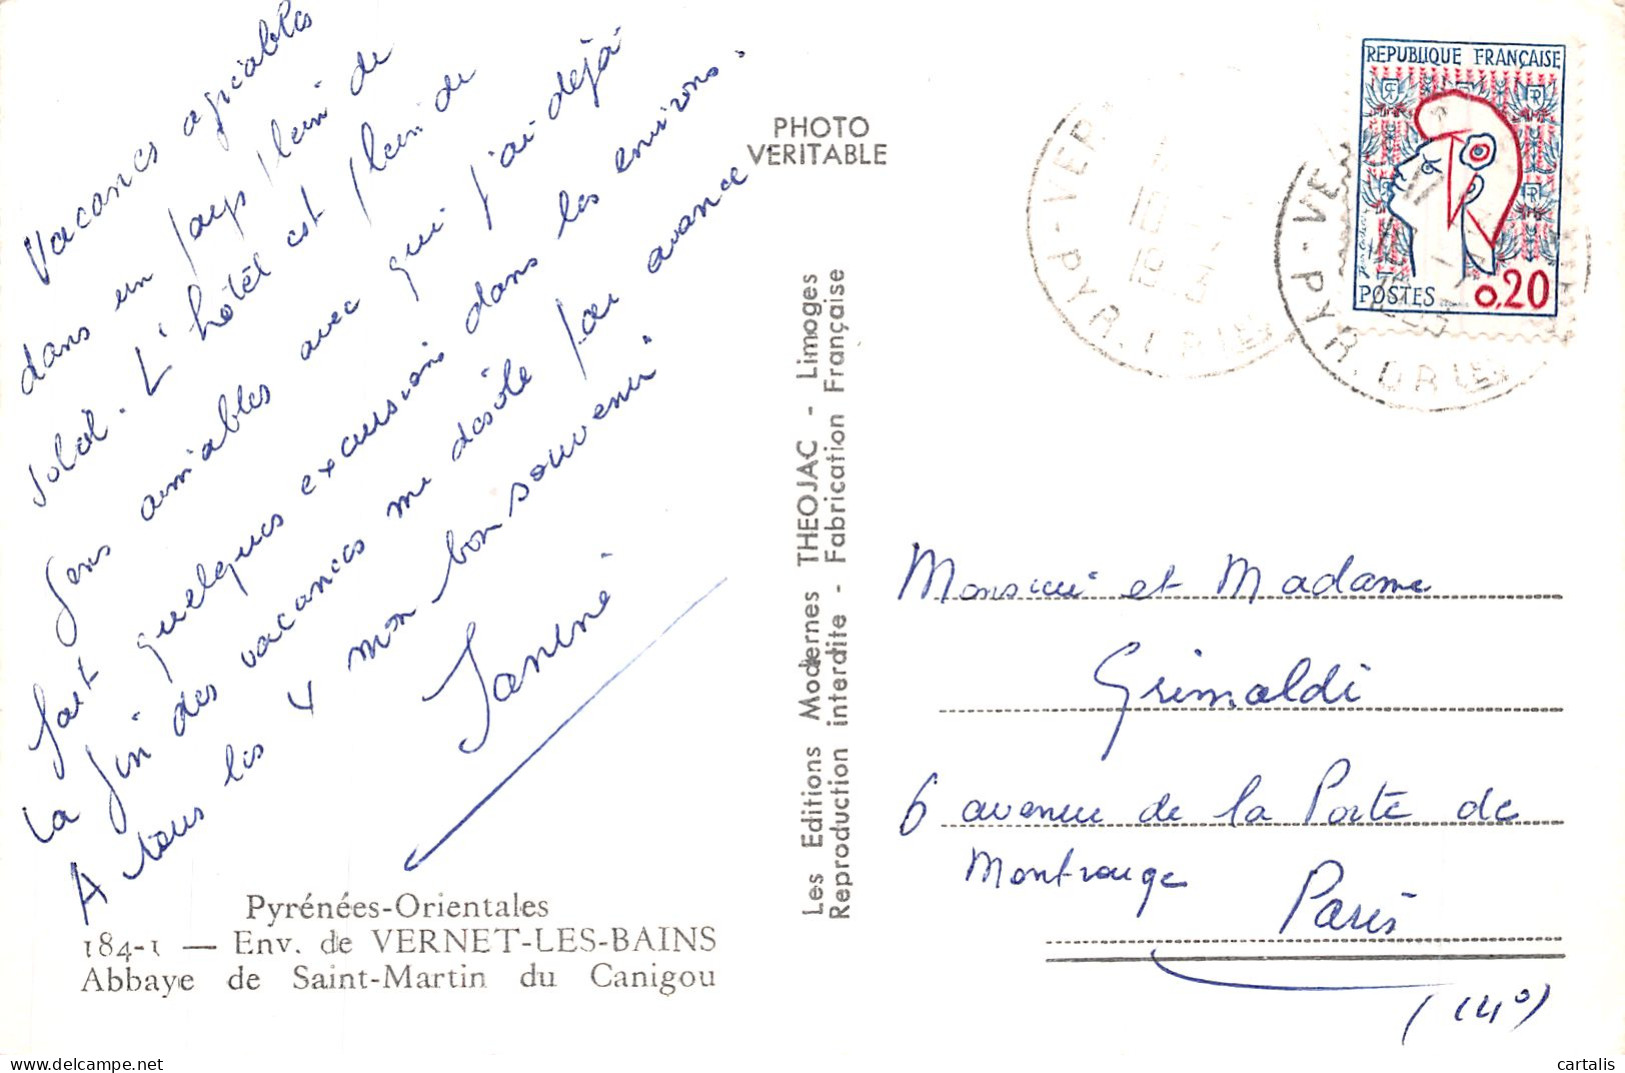 Vacances agréables
dans un pays plein de
soleil. L'hôtel est plein de
gens aimables avec qui j'ai déjà
fait quelques excursions dans les environs.
La fin des vacances me désole par avance.
A tous les 4 mon bon souvenir
Janine
Pyrénées-Orientales
184-1 — Env. de VERNET-LES-BAINS
Abbaye de Saint-Martin du Canigou
PHOTO
VERITABLE
Les Editions Modernes THEOJAC - Limoges
Reproduction interdite - Fabrication Française
REPUBLIQUE FRANÇAISE
POSTES 0,20
PYR. ORIES
PYR. ORLES
Monsieur et Madame
Grimaldi
6 avenue de la Porte de
Montrouge
Paris
(14°)
cartalis